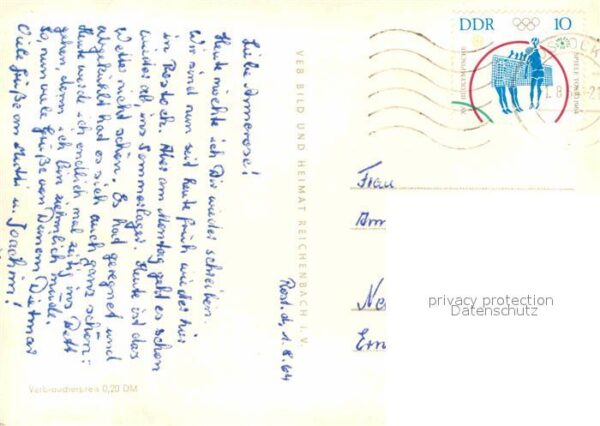 Rost. d, 1.8.64
Liebe Annerose!
Heute möchte ich Dir wieder schreiben.
Wir sind nun seit heute früh wieder hier
in Rostock. Aber am Montag geht es schon
wieder ab ins Sommerlager. Heute ist das
Wetter nicht schön. Es hat geregnet und
abgekühlt hat es sich auch ganz schön.
Heute werde ich endlich mal zeitig ins Bett
gehen denn ich bin ziemlich müde.
So nun viele Grüße von Deinem Dietmar
Viele Grüße an Mutti u. Joachim!
VEB BILD UND HEIMAT REICHENBACH i. V.
Verbraucherpreis 0,20 DM
DDR 10
XVIII. OLYMPISCHE
SPIELE TOKIO 1964
Frau
Ann
Ne
Ern
privacy protection
Datenschutz